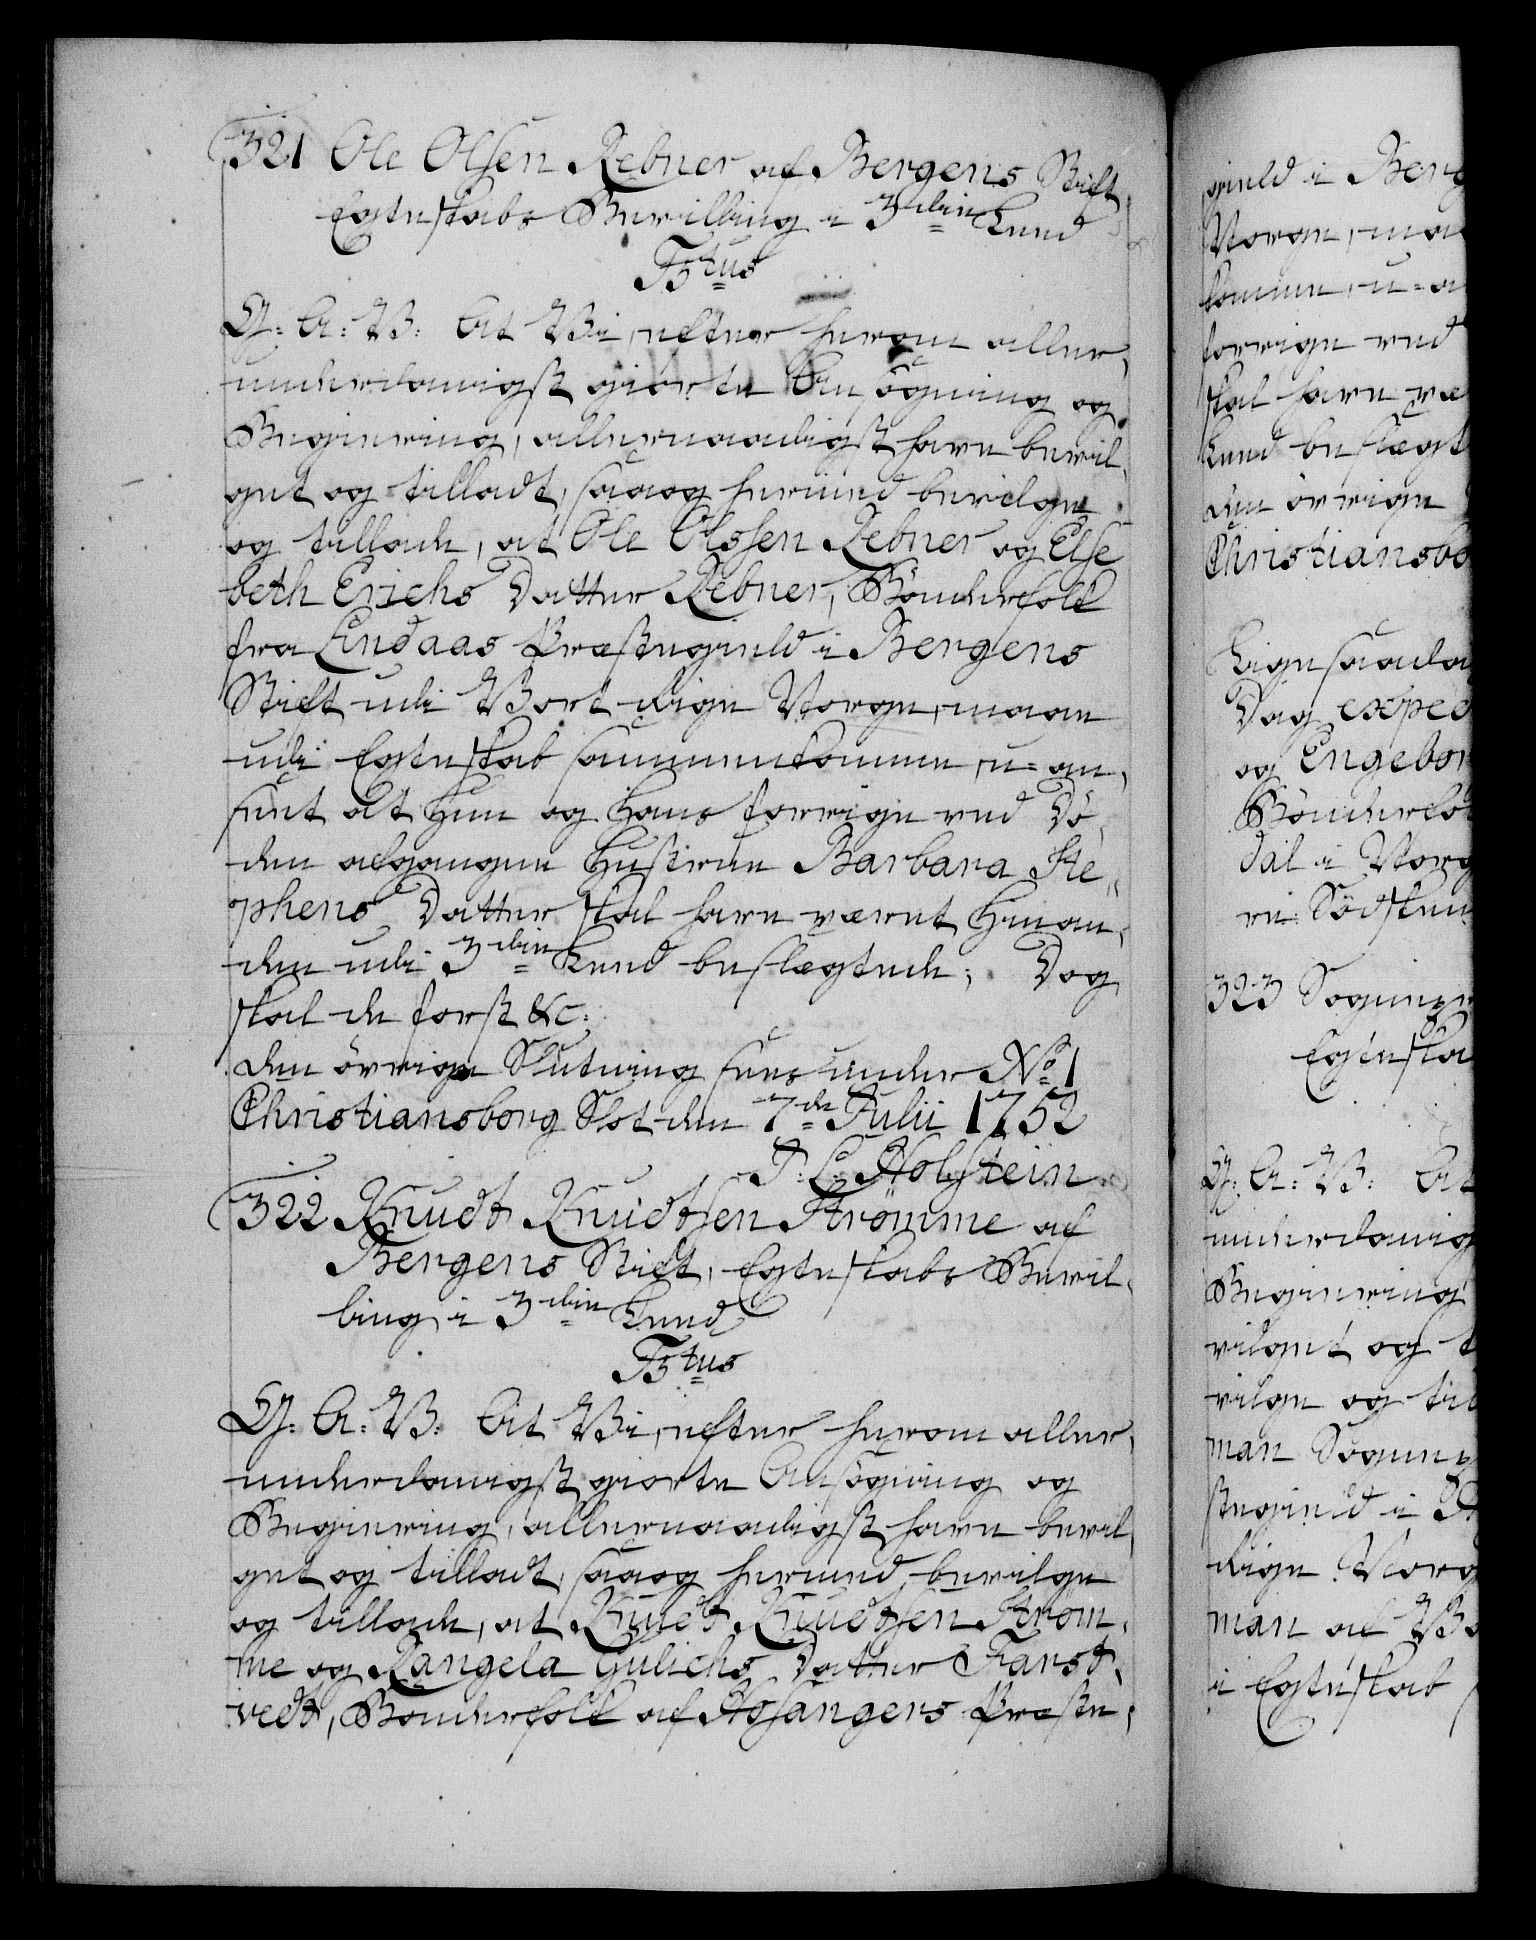 321 Ole Olsen Rebner af Bergens Stift
Egteskabs Bevilling i 3die Leed
F5tus
G: A: V: At Vi, efter herom aller,
underdanigst giorte Ansögning og
Begiering, allernaadigst have bevil,
get og tilladt, saa og hermed bevilge
og tillade, at Ole Olssen Rebner og Else
beth Erichs Datter Rebner, Bönderfolk
fra Lindaas Præstegield i Bergens
Stift udi Vort Rige Norge, maae
udi Egteskab sammenkomme, u-an,
seet at Hun og Hans forrige ved Dö,
den afgangne Hustrue Barbara Ste,,
phens Datter skal have været Hinan,
den udi 3die Leed beslægtede; Dog
skal de forst &c:
den övrige Slutning sees under No 1
Christiansborg Slot den 7de Julii 1752
J: L: Holstein
322 Knudt Knudtsen Strömme af
Bergens Stift, Egteskabs Bevil,
ling i 3die Leed
F5tus
G: A: V: At Vi, efter herom aller,
underdanigst giorte Ansögning og
Begiering, allernaadigst have bevil,
get og tilladt, saa og hermed bevilge
og tillade, at Knudt Knudtsen Ström,
me og Rangela Gulichs Datter Farst,
vedt, Bönderfolk af Hosangers Præste,
gield i Berg
Norge, maa
komme, u-a
forrige ved
skal have væ
Leed beslægt
den övrige
Christiansbo
Ligesaada
Dag exped
og Engebor
Bönderfol
dal i Norg
re Södsken
323
Egteska
G: A: V: At
underdanig
Begiering
vilget og t
vilge og til
man
stegield i
Rige Norg
man af
i Egteskab